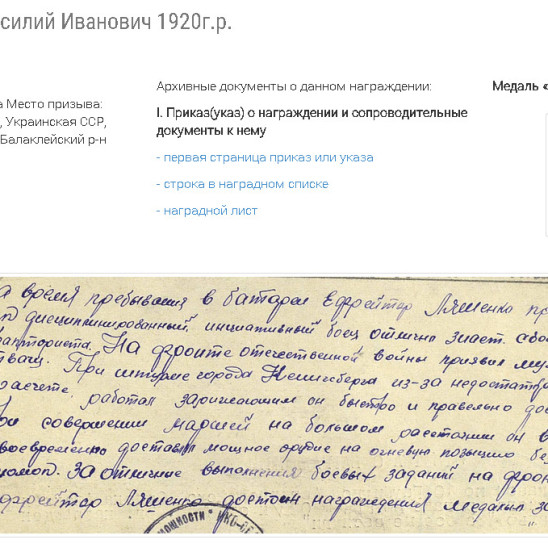 силий Иванович 1920г.р.
Архивные документы о данном награждении:
Медаль «
а Место призыва:
, Украинская ССР,
Балаклейский р-н
I. Приказ(указ) о награждении и сопроводительные
документы к нему
- первая страница приказ или указа
- строка в наградном списке
- наградной лист
а время пребывания в батареи Ефрейтор Ляшенко пр
дисциплинированный, инициативный боец отлично знает сво
На фронте отечественной войны призвал му
При штурме города Кенигсберга из-за недостат
расчете, работал заряжающим он быстро и правильно до
ри совершении маршей на большом расстоянии он в
воевременно доставил мощное орудие на огневую позицию бе
За отличное выполнения боевых заданий на фрон
ефрейтор Ляшенко достоин награждения медалью за
МОЩНОСТИ